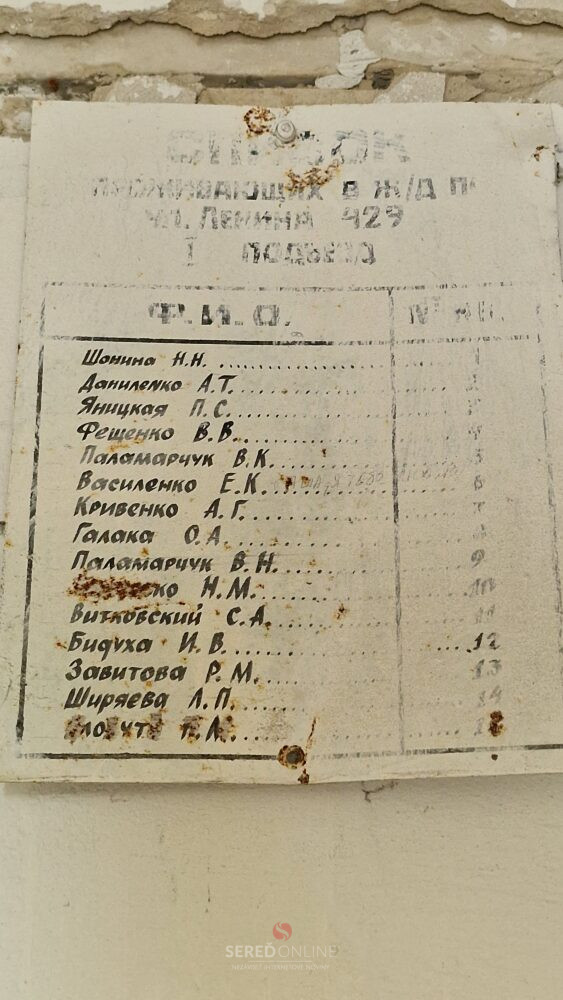 СПИСОК
ПРОЖИВАЮЩИХ В Ж/Д П
УЛ. ЛЕНИНА 429
I ПОДЪЕЗД
Ф.И.О. № КВ.
Шонина Н.Н. 1
Даниленко А.Т. 2
Яницкая П.С.
Фещенко В.В. 4
Паламарчук В.К. 5
Василенко Е.К. 6
Кривенко А.Г. 7
Галака О.А. 8
Паламарчук В.Н. 9
Н.М. 10
Витковский С.А. 11
Бидуха И.В. 12
Завитова Р.М. 13
Ширяева Л.П. 14
SEREĎONLINE